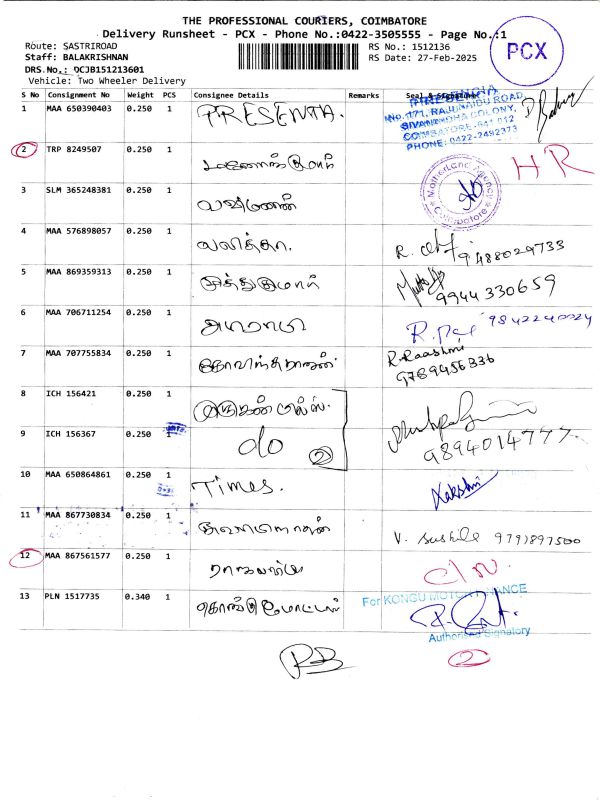 THE PROFESSIONAL COURIERS, COIMBATORE
Delivery Runsheet - PCX - Phone No.:0422-3505555 - Page No.:1
Route: SASTRIROAD
RS No.: 1512136
Staff: BALAKRISHNAN
RS Date: 27-Feb-2025
PCX
DRS.No.: QCJB151213601
Vehicle: Two Wheeler Delivery
S No Consignment No Weight PCS Consignee Details Remarks Seal & Signature
1 MAA 650390403 0.250 1 PRESENTA.
PRESENTIA
No.1/71, RAJU NAIDU ROAD,
SIVANANDHA COLONY,
COIMBATORE-641 012
PHONE: 0422-2492373
2 TRP 8249507 0.250 1
HR
3 SLM 365248381 0.250 1 லஷ்மணன்
Motherland Agency
Coimbatore
4 MAA 576898057 0.250 1 லலித்தா. R. 9488029733
5 MAA 869359313 0.250 1 முத்துகுமார் 9944330659
6 MAA 706711254 0.250 1 9842240024
7 MAA 707755834 0.250 1 கோவிந்தராஜன் R. Raashmi
9789456336
8 ICH 156421 0.250 1 முருகன் மில்ஸ்.
9 ICH 156367 0.250 1 do ② 9894014777
10 MAA 650864861 0.250 1 Times. Lakshmi
11 MAA 867730834 0.250 1 V. Sushile 9791897500
12 MAA 867561577 0.250 1
13 PLN 1517735 0.340 1 கொங்கு மோட்டார்
For KONGU MOTOR FINANCE
Authorised Signatory
RB
2